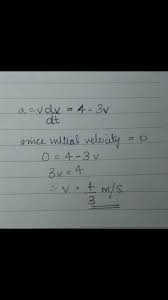 a = v dv/dt = 4 - 3v
since initial velocity = 0
0 = 4 - 3v
3v = 4
∴ v = 4/3 m/s